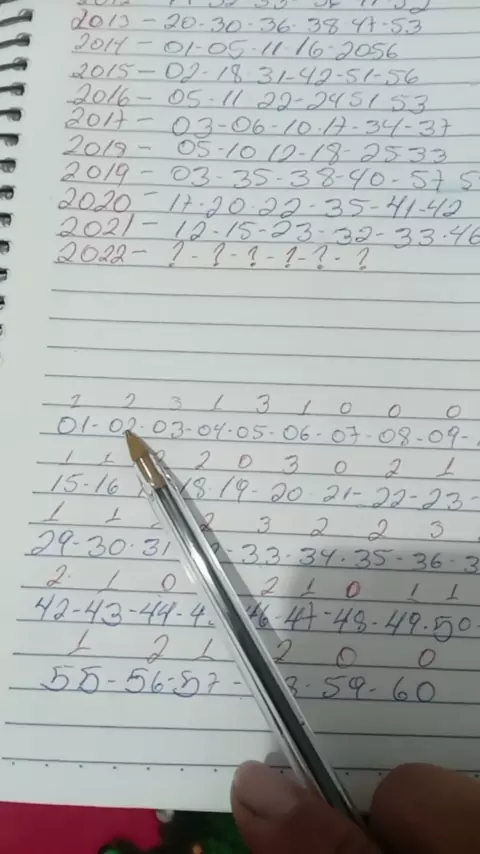 2013 - 20-30-36-38-47-53
2014 - 01-05-11-16-2056
2015 - 02-18-31-42-51-56
2016 - 05-11 22-24 51 53
2017 - 03-06-10-17-34-37
2018 - 05-10 12-18-25 33
2019 - 03-35-38-40-57 5
2020 - 17-20-22-35-41-42
2021 - 12-15-23-32-33-46
2022 - ?-?-?-?-?-?
2 3 1 3 1 0 0 0
01-02-03-04-05-06-07-08-09-
1 1 2 0 3 0 2 1
15-16 18-19-20-21-22-23-
1 1 2 3 2 2 3
29-30-31 33-34-35-36-3
2 1 0 2 1 0 1 1
42-43-44-4 46-47-48-49-50-
1 2 1 2 0 0
55-56-57- 59-60